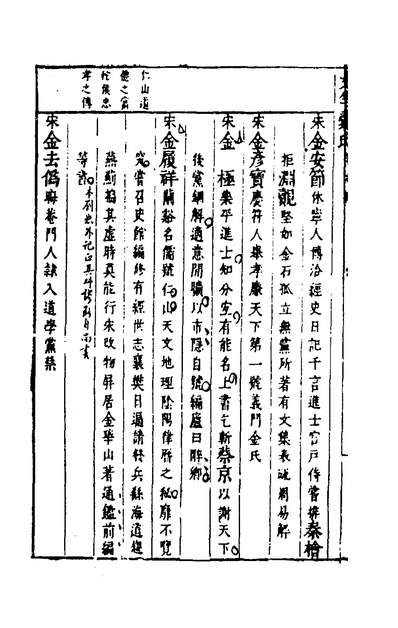 宋金安節休寧人博洽經史日記千言進士官戶侍嘗排秦檜
拒淵覿堅如金石孤立無黨所著有文集表疏周易解
宋金彥寶慶符人舉孝廉天下第一號義門金氏
宋金極樂平進士知分宜有能名上書乞斬蔡京以謝天下
後黨網解適意閒曠以市隱自號編廬曰睡鄉
宋金履祥蘭谿名儒號仁山天文地理陰陽律曆之秘靡不覽
究嘗召史館編修有經世志襄樊日逼請發兵絲海道趨
燕薊搗其虛時莫能行宋改物屏居金華山著通鑑前編
等書
宋金去偽晦菴門人隷入道學黨禁
仁山道
德之富
孝之傳